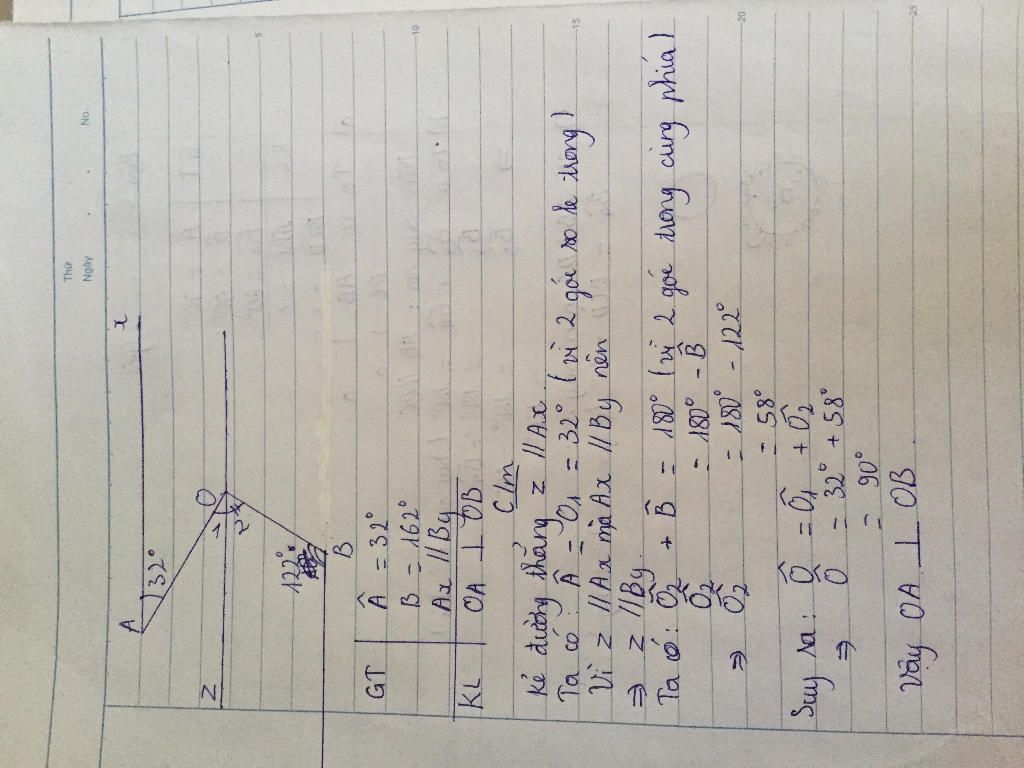 Thứ
Ngày . . No.
5
10
15
20
25
A 32° x
Z 1 O
2
122° B
GT Â = 32°
B = 162°
Ax // By
KL OA ⊥ OB
C/m
Kẻ đường thẳng z // Ax
Ta có: Â = Ô1 = 32° (vì 2 góc so le trong)
Vì z // Ax mà Ax // By nên
⇒ z // By
Ta có: Ô2 + B̂ = 180° (vì 2 góc trong cùng phía)
Ô2 = 180° - B̂
⇒ Ô2 = 180° - 122°
= 58°
Suy ra: Ô = Ô1 + Ô2
⇒ Ô = 32° + 58°
= 90°
Vậy OA ⊥ OB.